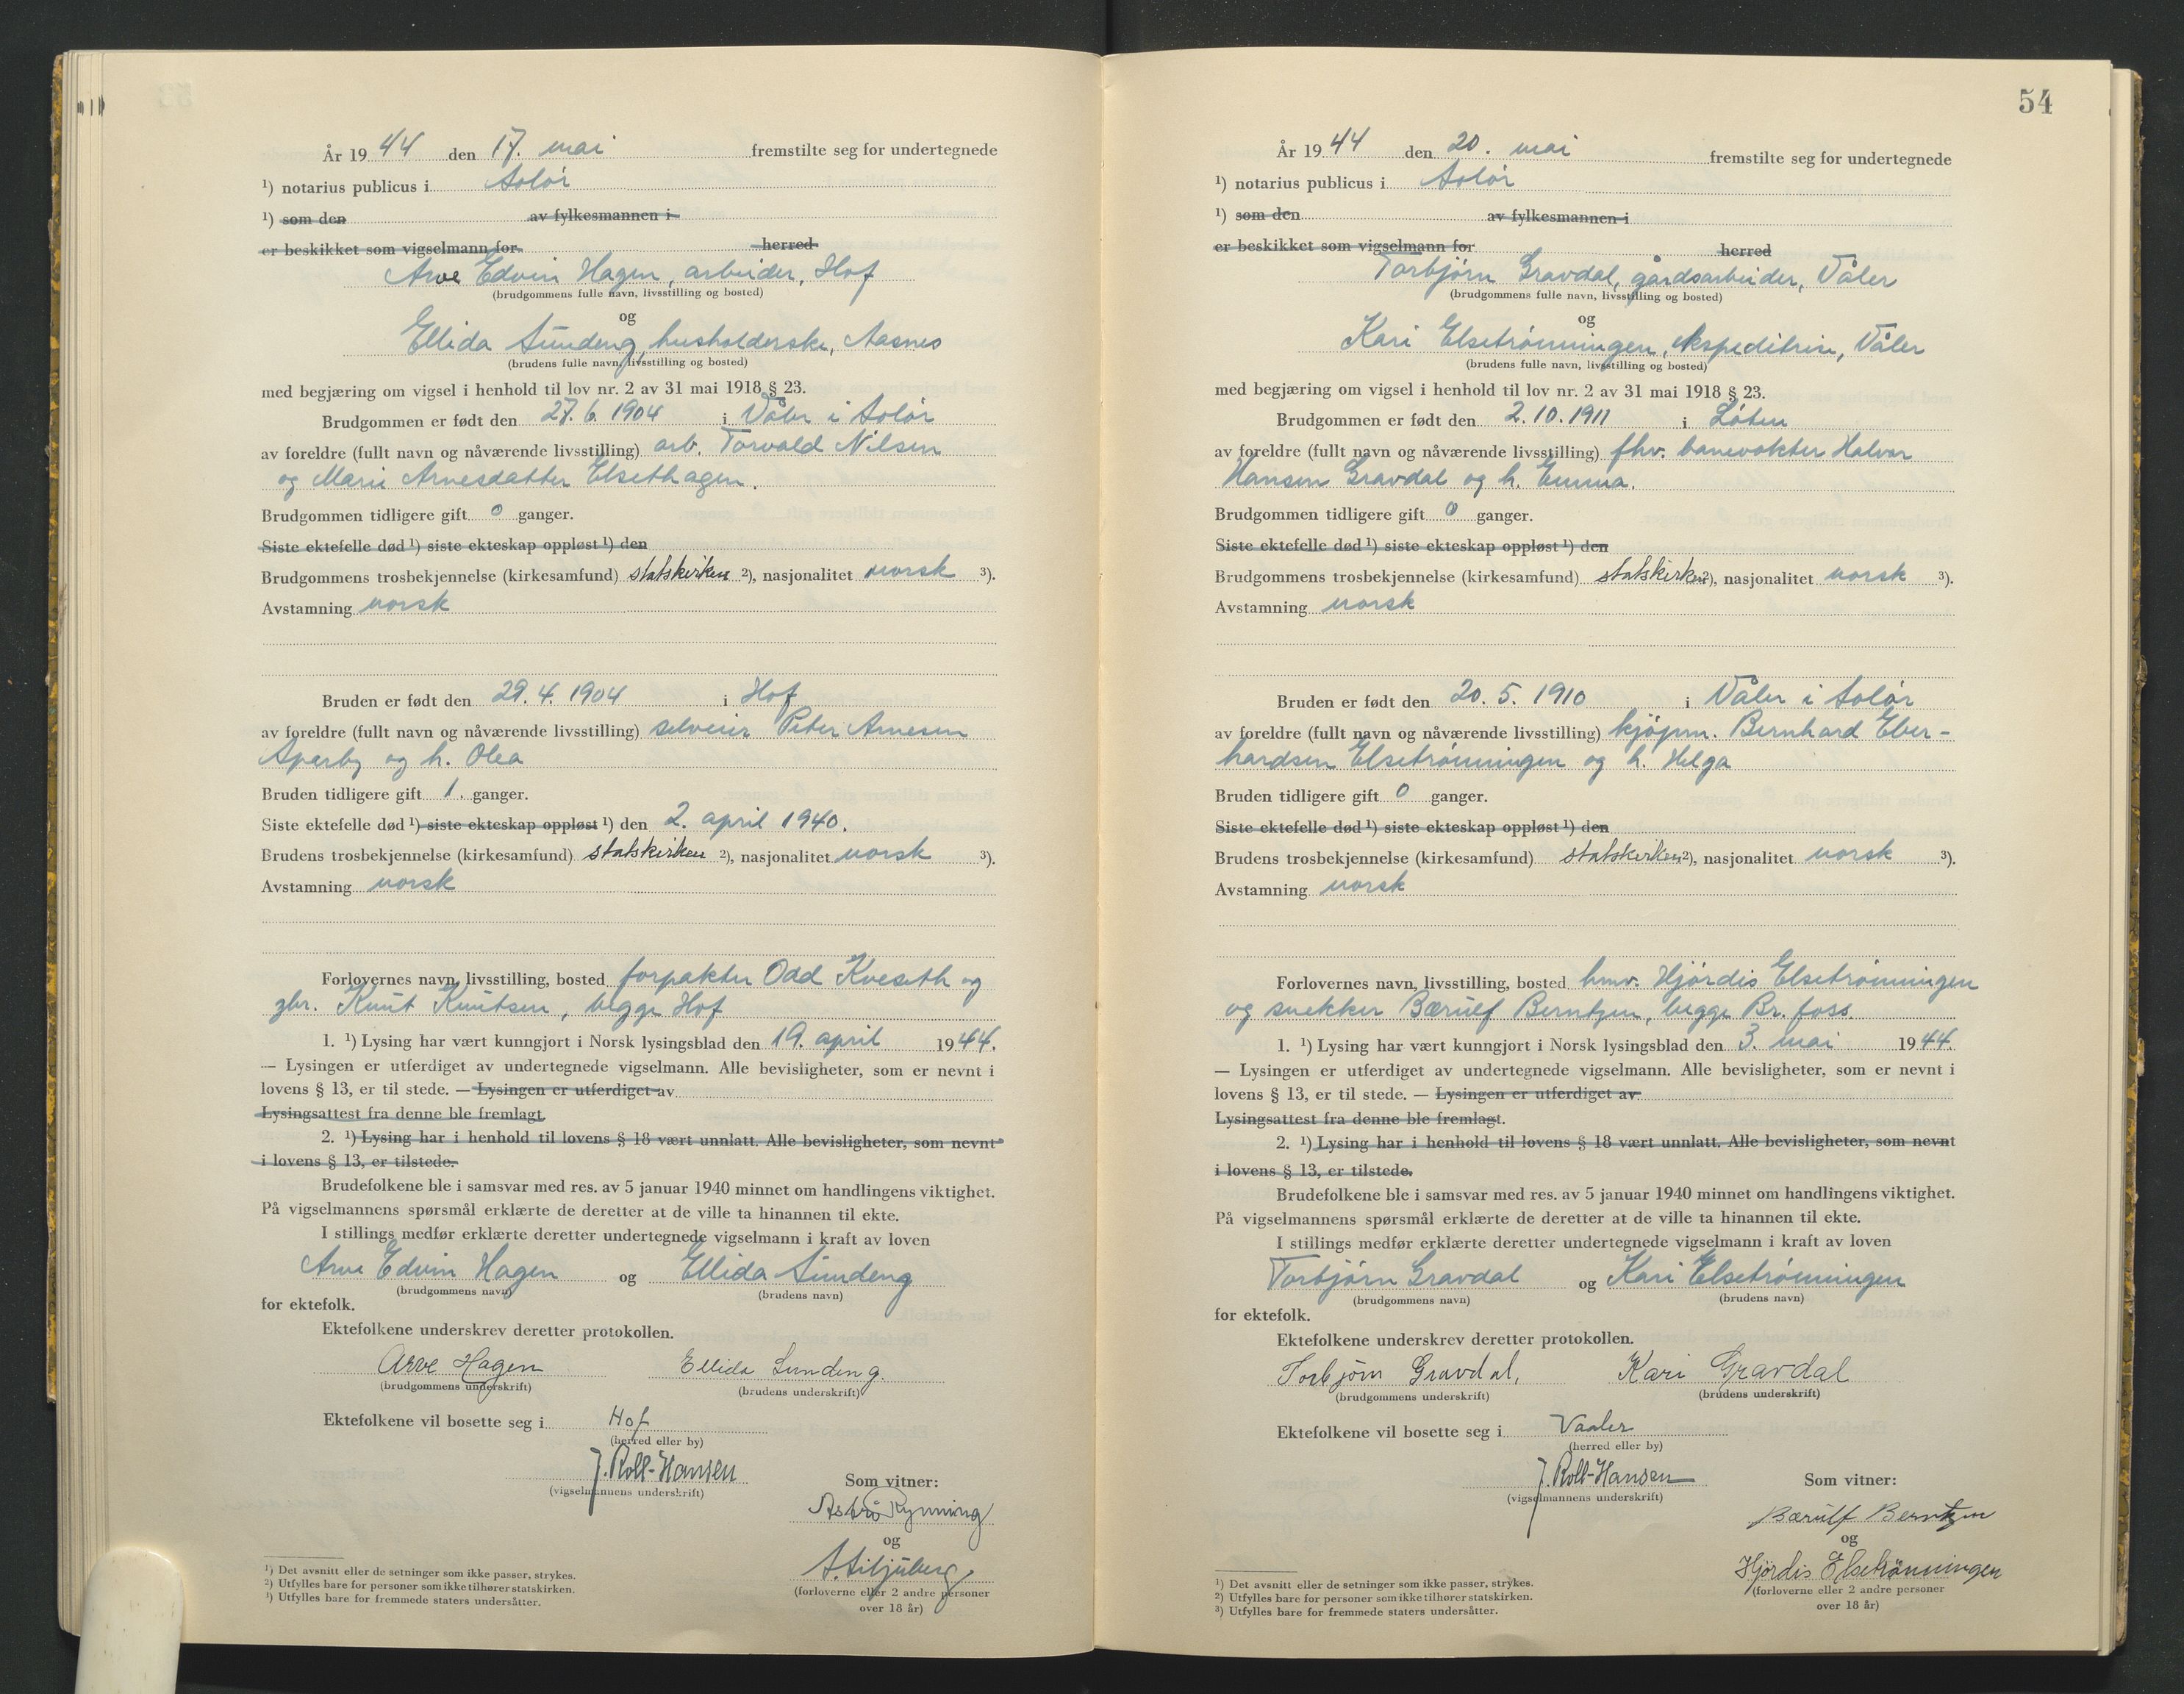 År 1944 den 17. mai fremstilte seg for undertegnede
¹) notarius publicus i Solør
¹) som den av fylkesmannen i
er beskikket som vigselmann for herred
Arve Edvin Hagen, arbeider, Hof
(brudgommens fulle navn, livsstilling og bosted)
og
Ellida Sundeng, husholderske, Aasnes
(brudens fulle navn, livsstilling og bosted)
med begjæring om vigsel i henhold til lov nr. 2 av 31 mai 1918 § 23.
Brudgommen er født den 27. 6. 1904 i Våler i Solør
av foreldre (fullt navn og nåværende livsstilling) arb. Torvald Nilsen
og Marie Arnesdatter Elsethagen.
Brudgommen tidligere gift 0 ganger.
Siste ektefelle død ¹) siste ekteskap oppløst ¹) den
Brudgommens trosbekjennelse (kirkesamfund) statskirken ²), nasjonalitet norsk ³).
Avstamning norsk
Bruden er født den 29. 4. 1904 i Hof
av foreldre (fullt navn og nåværende livsstilling) selveier Peter Arnesen
Sparby og h. Olea
Bruden tidligere gift 1. ganger.
Siste ektefelle død ¹) siste ekteskap oppløst ¹) den 2. april 1940.
Brudens trosbekjennelse (kirkesamfund) statskirken ²), nasjonalitet norsk ³).
Avstamning norsk
Forlovernes navn, livsstilling, bosted forpakter Odd Kveseth og
gbr. Knut Knutsen, begge Hof
1. ¹) Lysing har vært kunngjort i Norsk lysingsblad den 19. april 1944.
— Lysingen er utferdiget av undertegnede vigselmann. Alle bevisligheter, som er nevnt i
lovens § 13, er til stede. — Lysingen er utferdiget av
Lysingsattest fra denne ble fremlagt.
2. ¹) Lysing har i henhold til lovens § 18 vært unnlatt. Alle bevisligheter, som nevnt
i lovens § 13, er tilstede.
Brudefolkene ble i samsvar med res. av 5 januar 1940 minnet om handlingens viktighet.
På vigselmannens spørsmål erklærte de deretter at de ville ta hinannen til ekte.
I stillings medfør erklærte deretter undertegnede vigselmann i kraft av loven
Arve Edvin Hagen og Ellida Sundeng
(brudgommens navn) (brudens navn)
for ektefolk.
Ektefolkene underskrev deretter protokollen.
Arve Hagen Ellida Sundeng.
(brudgommens underskrift) (brudens underskrift)
Ektefolkene vil bosette seg i Hof
(herred eller by)
J. Roll-Hansen
(vigselmannens underskrift)
Som vitner:
Rynning
og
(forloverne eller 2 andre personer
over 18 år)
¹) Det avsnitt eller de setninger som ikke passer, strykes.
²) Utfylles bare for personer som ikke tilhører statskirken.
³) Utfylles bare for fremmede staters undersåtter.
54
År 1944 den 20. mai fremstilte seg for undertegnede
¹) notarius publicus i Solør
¹) som den av fylkesmannen i
er beskikket som vigselmann for herred
Torbjørn Gravdal, gårdsarbeider, Våler
(brudgommens fulle navn, livsstilling og bosted)
og
Kari Elsetrønningen, ekspeditrise, Våler
(brudens fulle navn, livsstilling og bosted)
med begjæring om vigsel i henhold til lov nr. 2 av 31 mai 1918 § 23.
Brudgommen er født den 2. 10. 1911 i Løten
av foreldre (fullt navn og nåværende livsstilling) fhv. banevokter Halvor
Hansen Gravdal og h. Emma.
Brudgommen tidligere gift 0 ganger.
Siste ektefelle død ¹) siste ekteskap oppløst ¹) den
Brudgommens trosbekjennelse (kirkesamfund) statskirken ²), nasjonalitet norsk ³).
Avstamning norsk
Bruden er født den 20. 5. 1910 i Våler i Solør
av foreldre (fullt navn og nåværende livsstilling) kjøpm. Bernhard Eber-
hardsen Elsetrønningen og h. Helga
Bruden tidligere gift 0 ganger.
Siste ektefelle død ¹) siste ekteskap oppløst ¹) den
Brudens trosbekjennelse (kirkesamfund) statskirken ²), nasjonalitet norsk ³).
Avstamning norsk
Forlovernes navn, livsstilling, bosted hmv. Hjørdis Elsetrønningen
og snekker Bærulf Berntzen, begge Br. foss.
1. ¹) Lysing har vært kunngjort i Norsk lysingsblad den 3. mai 1944.
— Lysingen er utferdiget av undertegnede vigselmann. Alle bevisligheter, som er nevnt i
lovens § 13, er til stede. — Lysingen er utferdiget av
Lysingsattest fra denne ble fremlagt.
2. ¹) Lysing har i henhold til lovens § 18 vært unnlatt. Alle bevisligheter, som nevnt
i lovens § 13, er tilstede.
Brudefolkene ble i samsvar med res. av 5 januar 1940 minnet om handlingens viktighet.
På vigselmannens spørsmål erklærte de deretter at de ville ta hinannen til ekte.
I stillings medfør erklærte deretter undertegnede vigselmann i kraft av loven
Torbjørn Gravdal og Kari Elsetrønningen
(brudgommens navn) (brudens navn)
for ektefolk.
Ektefolkene underskrev deretter protokollen.
Torbjørn Gravdal, Kari Gravdal
(brudgommens underskrift) (brudens underskrift)
Ektefolkene vil bosette seg i Vaaler
(herred eller by)
J. Roll-Hansen
(vigselmannens underskrift)
Som vitner:
Bærulf Berntzen
og
Hjördis Elsetrönningen
(forloverne eller 2 andre personer
over 18 år)
¹) Det avsnitt eller de setninger som ikke passer, strykes.
²) Utfylles bare for personer som ikke tilhører statskirken.
³) Utfylles bare for fremmede staters undersåtter.